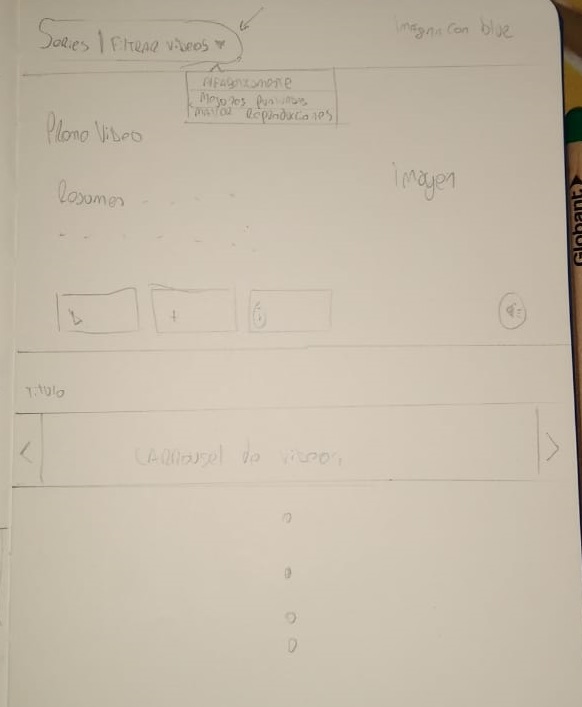 Series | Filtrar videos ▾
Imagen con blue
Alfabeticamente
Mayores Puntajes
Mayor Reproducciones
Promo Video
Resumen
Imagen
+
i
Titulo
<
Carrousel de videos
>
Globant